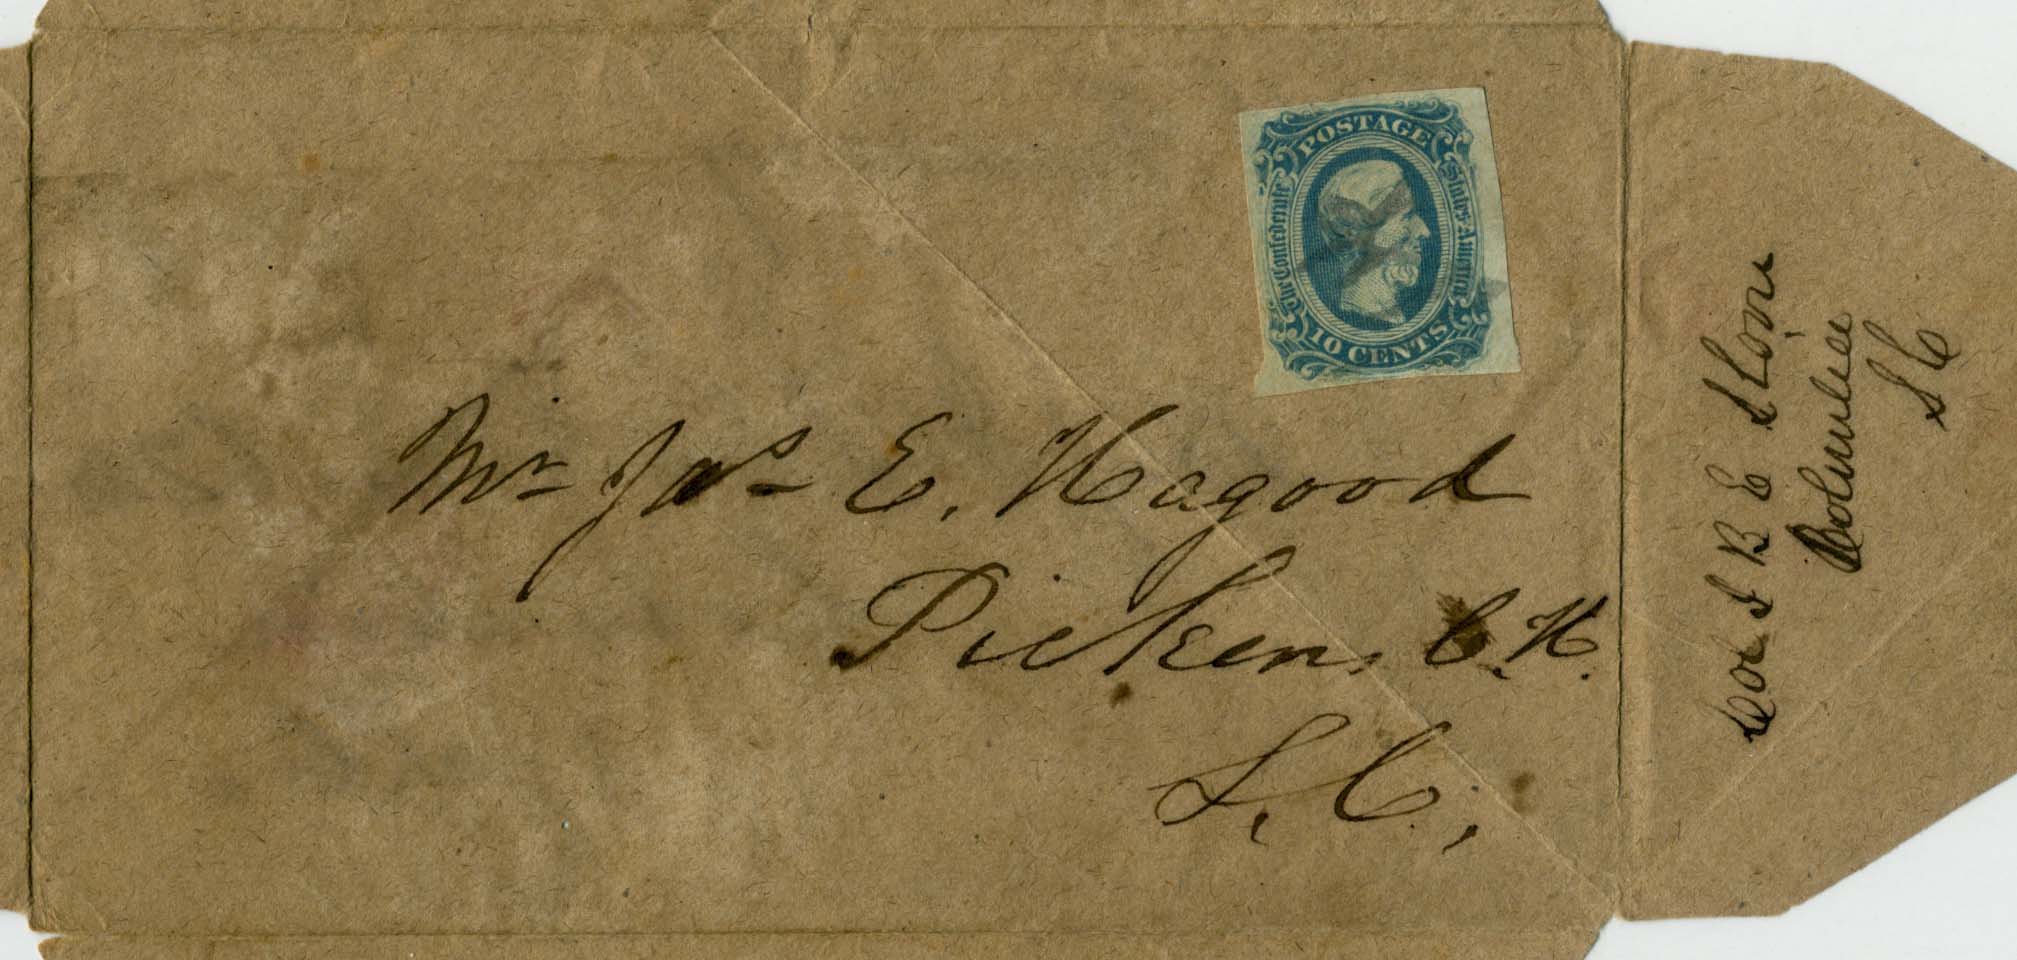 POSTAGE
The Confederate
States of America
10 CENTS
Mr Jas E. Hagood
Pickens C.H.
S.C.
Col J B E Sloan
Columbia
S C